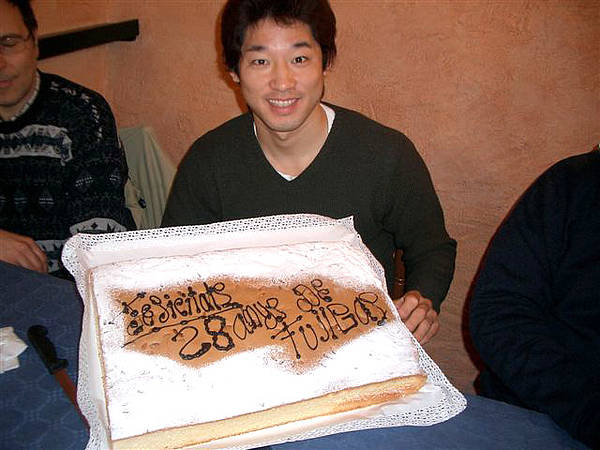 Fèsicitats
28 anys DE
FuJiBas